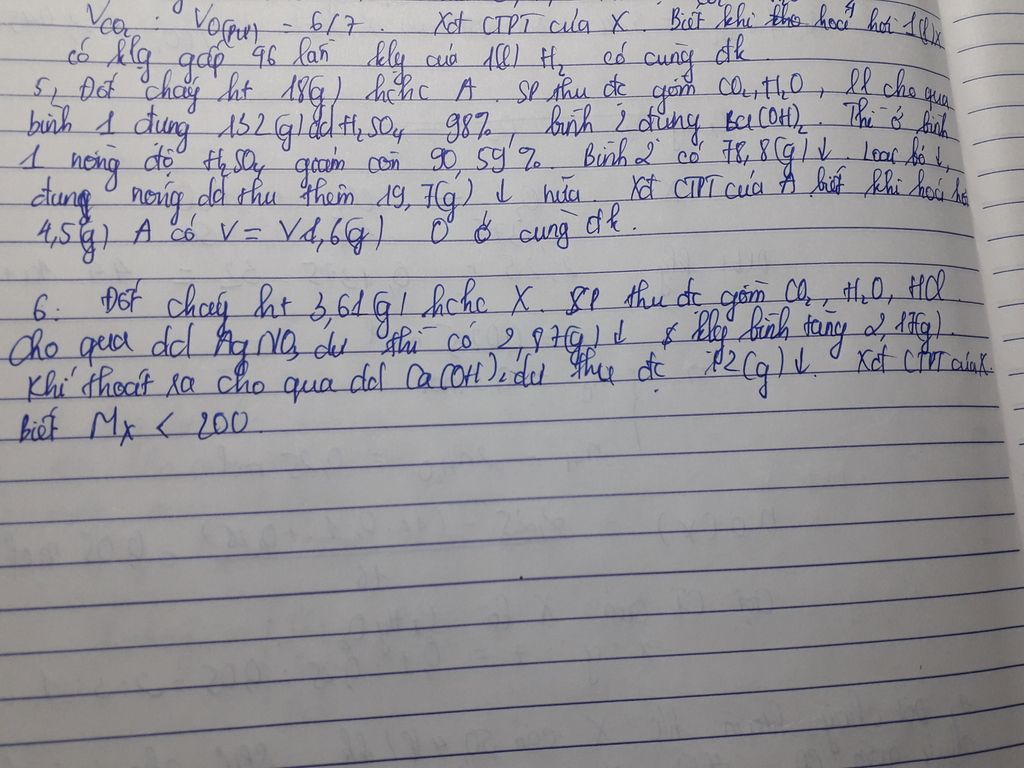 V CO₂ : V O(pư) = 6/7. Xđ CTPT của X. Biết khi hoá hơi 1(l) X
có klg gấp 96 lần klg của 1(l) H₂ có cùng đk
5, Đốt cháy ht 18(g) hchc A. SP thu đc gồm CO₂, H₂O, ll cho qua
bình 1 đựng 132(g) dd H₂SO₄ 98%, bình 2 đựng Ba(OH)₂. Thì ở bình
1 nồng độ H₂SO₄ giảm còn 90,59%. Bình 2 có 78,8(g)↓. Loại bỏ ↓,
đung nóng dd thu thêm 19,7(g) ↓ nữa. Xđ CTPT của A biết khi hoá hơi
4,5(g) A có V = V 1,6(g) O ở cùng đk.
6. Đốt cháy ht 3,61(g) hchc X. SP thu đc gồm CO₂, H₂O, HCl.
Cho qua dd AgNO₃ dư thì có 2,87(g)↓ & klg bình tăng 2,17(g).
Khí thoát ra cho qua dd Ca(OH)₂ dư thu đc 12(g)↓. Xđ CTPT của X.
biết Mx < 200